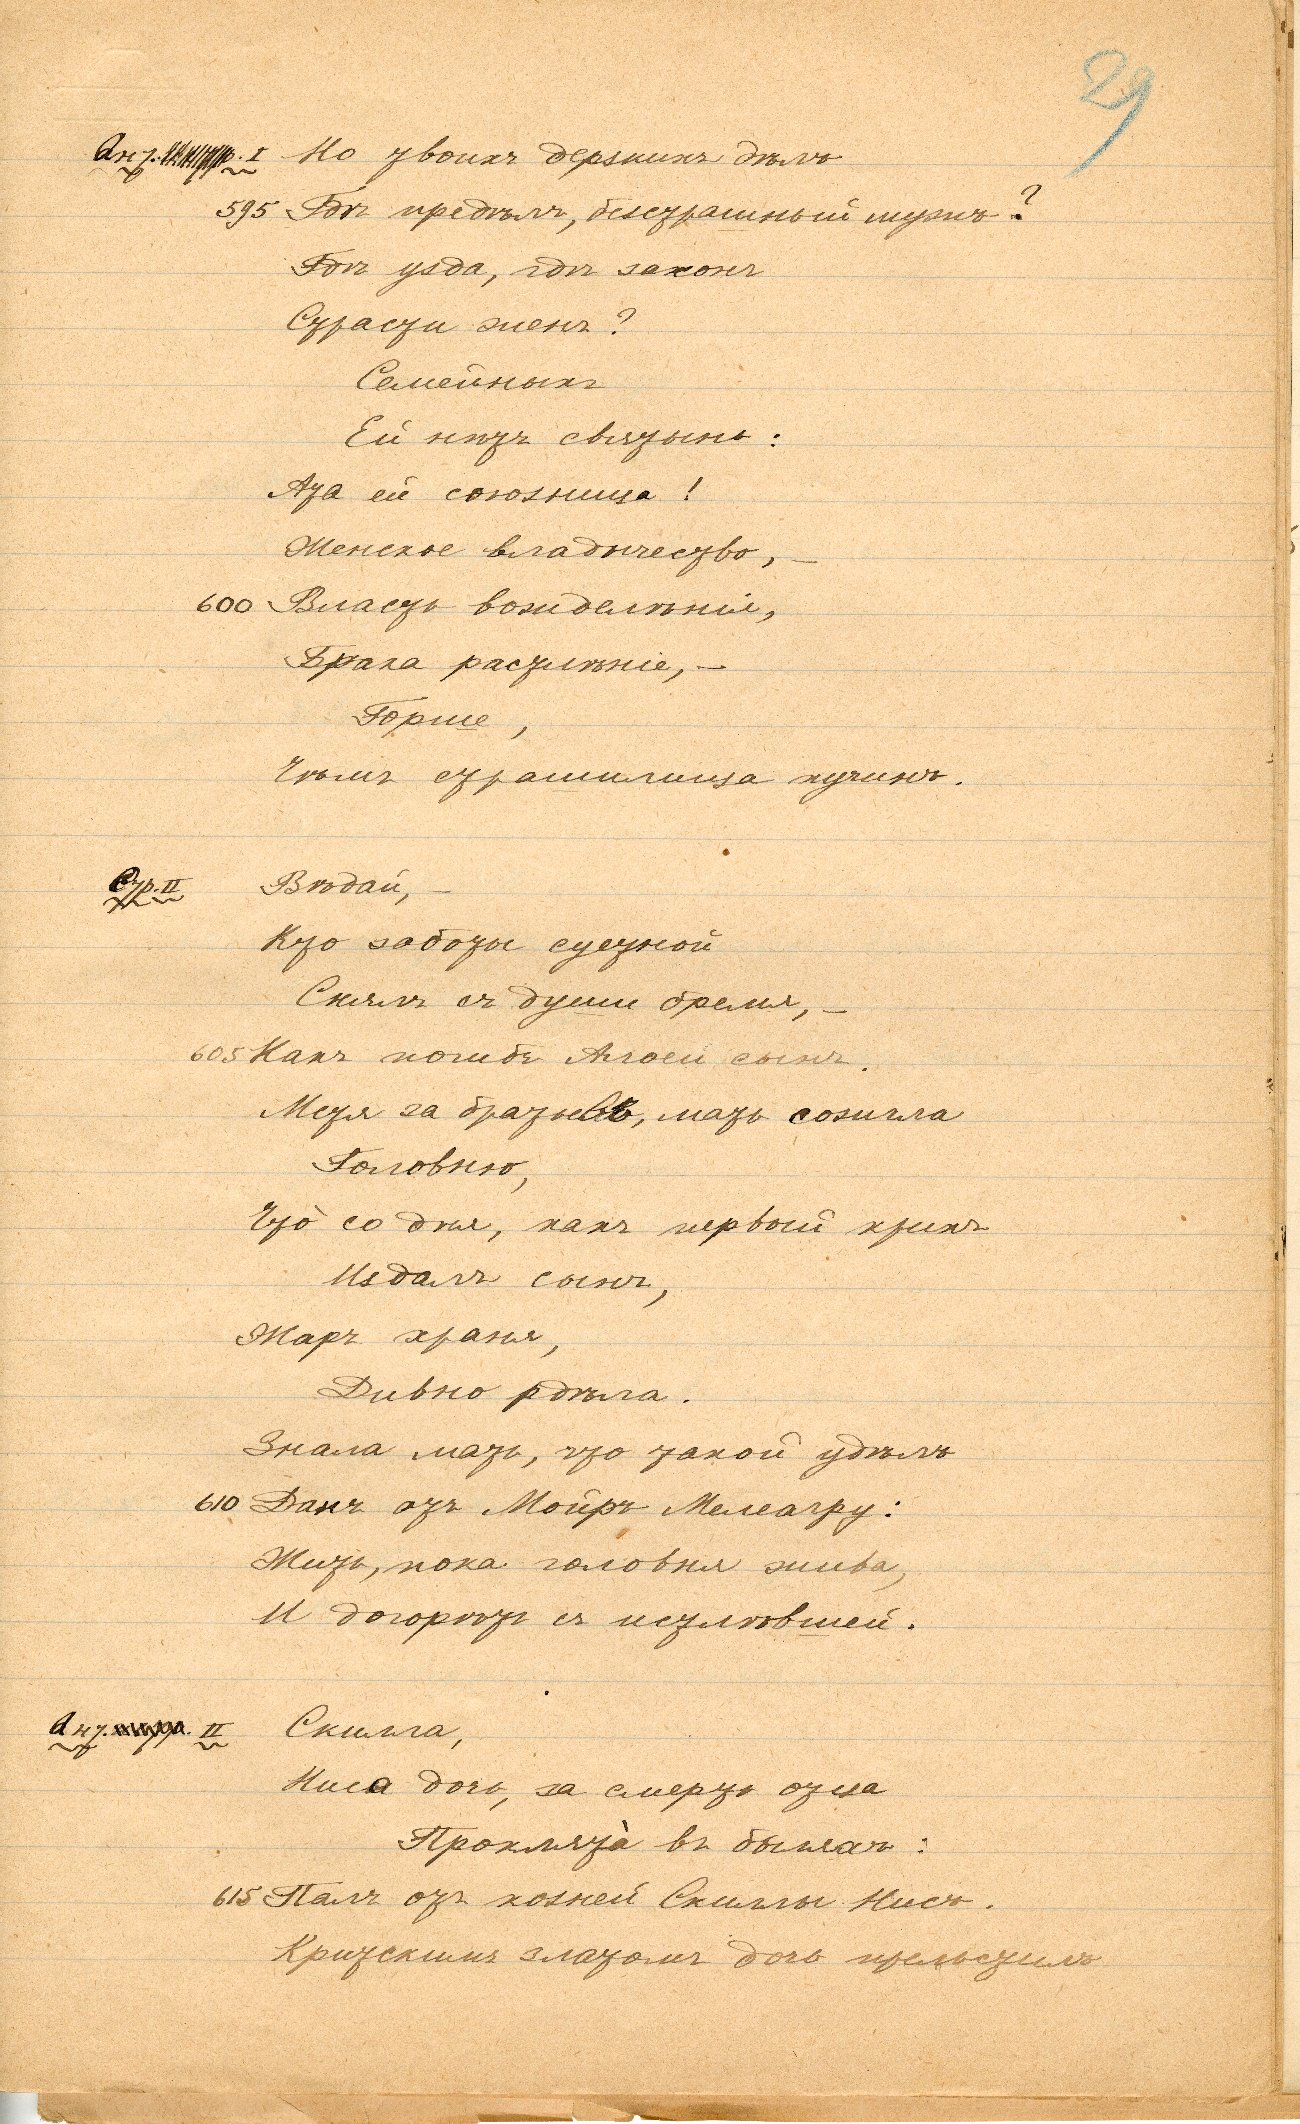 29
Ант. I Но твоихъ дерзкихъ дѣлъ
595 Гдѣ предѣлъ, безстрашный мужъ?
Гдѣ узда, гдѣ законъ
Страсти женъ?
Семейныхъ
Ей нѣтъ святынь:
Ата ей союзница!
Женское владычество, —
600 Власть вожделѣнія,
Брака растлѣніе, —
Горше,
Чѣмъ страшилища пучинъ.
Стр. II Вѣдай, —
Кто заботы суетной
Снялъ съ души бремя, —
605 Какъ погибъ Алтеи сынъ.
Мстя за братьевъ, мать сожгла
Головню,
Что̀ со дня, какъ первый крикъ
Издалъ сынъ,
Жаръ храня,
Дивно рдѣла.
Знала мать, что такой удѣлъ
610 Данъ отъ Мойръ Мелеагру:
Жить, пока головня жива,
И догорѣть съ истлѣвшей.
Ант. II Скилла,
Ниса дочь, за смерть отца
Проклята̀ въ быляхъ:
615 Палъ отъ козней Скиллы Нисъ.
Критскимъ златомъ дочь прельстилъ